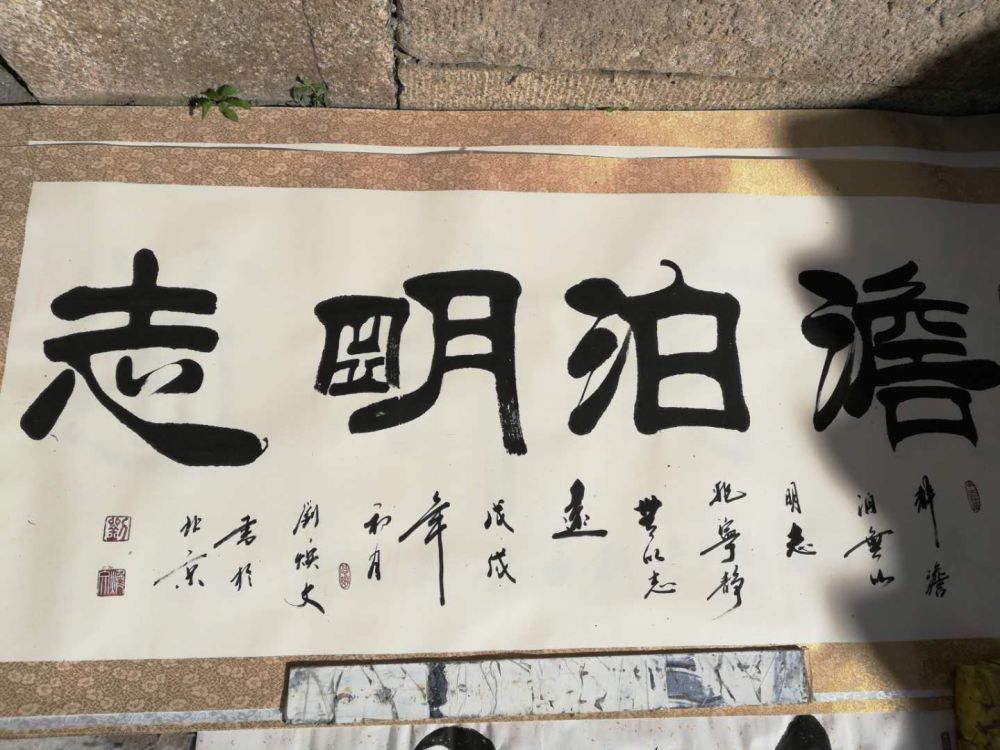 澹泊明志
非澹
泊無以
明志
非寧静
無以志
遠
戊戌
年
初月
劉焕文
書於
北京
劉